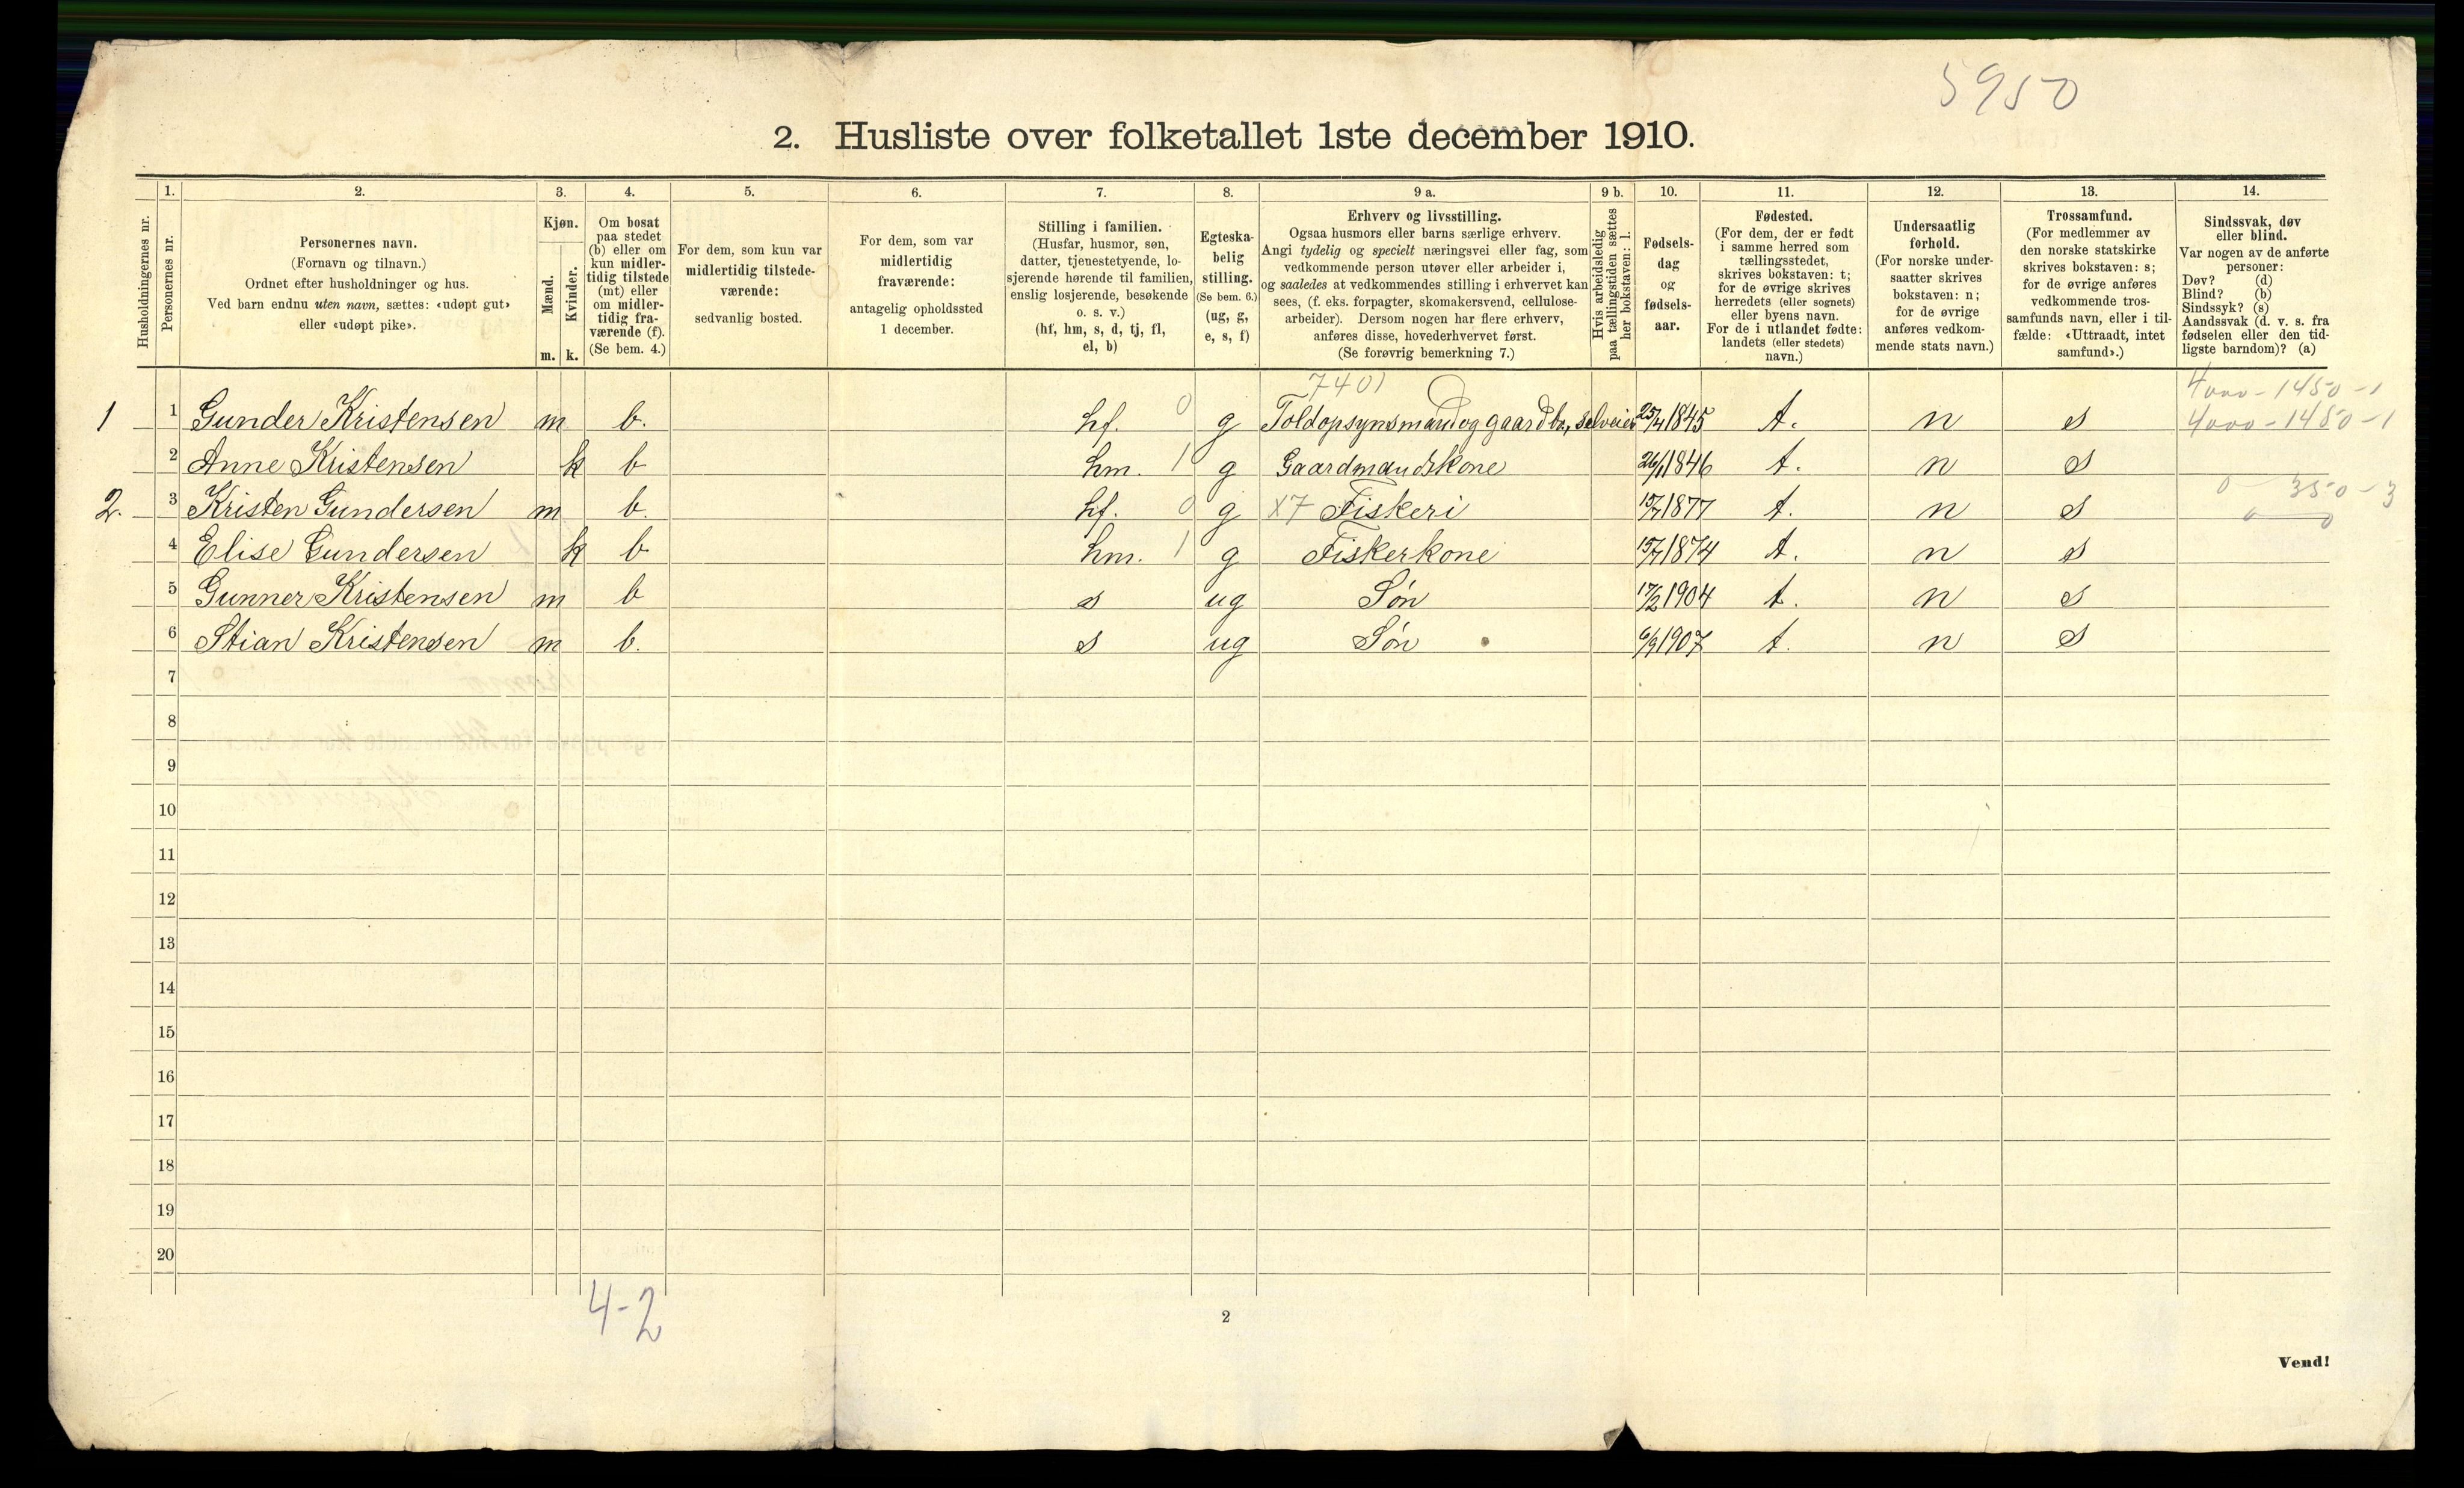 5950
2. Husliste over folketallet 1ste december 1910.
Husholdningernes nr.
1.
Personernes nr.
2.
Personernes navn.
(Fornavn og tilnavn.)
Ordnet efter husholdninger og hus.
Ved barn endnu uten navn, sættes: «udøpt gut»
eller «udøpt pike».
3.
Kjøn.
Mænd.
Kvinder.
m. k.
4.
Om bosat
paa stedet
(b) eller om
kun midler-
tidig tilstede
(mt) eller
om midler-
tidig fra-
værende (f).
(Se bem. 4.)
5.
For dem, som kun var
midlertidig tilstede-
værende:
sedvanlig bosted.
6.
For dem, som var
midlertidig
fraværende:
antagelig opholdssted
1 december.
7.
Stilling i familien.
(Husfar, husmor, søn,
datter, tjenestetyende, lo-
sjerende hørende til familien,
enslig losjerende, besøkende
o. s. v.)
(hf, hm, s, d, tj, fl,
el, b)
8.
Egteska-
belig
stilling.
(Se bem. 6.)
(ug, g,
e, s, f)
9 a.
Erhverv og livsstilling.
Ogsaa husmors eller barns særlige erhverv.
Angi tydelig og specielt næringsvei eller fag, som
vedkommende person utøver eller arbeider i,
og saaledes at vedkommendes stilling i erhvervet kan
sees, (f. eks. forpagter, skomakersvend, cellulose-
arbeider). Dersom nogen har flere erhverv,
anføres disse, hovederhvervet først.
(Se forøvrig bemerkning 7.)
9 b.
Hvis arbeidsledig
paa tællingstiden sættes
her bokstaven: l.
10.
Fødsels-
dag
og
fødsels-
aar.
11.
Fødested.
(For dem, der er født
i samme herred som
tællingsstedet,
skrives bokstaven: t;
for de øvrige skrives
herredets (eller sognets)
eller byens navn.
For de i utlandet fødte:
landets (eller stedets)
navn.)
12.
Undersaatlig
forhold.
(For norske under-
saatter skrives
bokstaven: n;
for de øvrige
anføres vedkom-
mende stats navn.)
13.
Trossamfund.
(For medlemmer av
den norske statskirke
skrives bokstaven: s;
for de øvrige anføres
vedkommende tros-
samfunds navn, eller i til-
fælde: «Uttraadt, intet
samfund».)
14.
Sindssvak, døv
eller blind.
Var nogen av de anførte
personer:
Døv? (d)
Blind? (b)
Sindssyk? (s)
Aandssvak (d. v. s. fra
fødselen eller den tid-
ligste barndom)? (a)
7401 4000 - 1450 - 1
1 1 Gunder Kristensen m b. hf. 0 g Toldopsynsmand og gaardbr, selveier 25/4 1845 t. n s 4000 - 1450 - 1
2 Anne Kristensen k b hm. 1 g Gaardmandskone 26/1 1846 t. n s
2. 3 Kristen Gundersen m b. hf. 0 g x7 Fiskeri 15/7 1877 t. n s 0 350 - 3
0 0
4 Elise Gundersen k b hm. 1 g Fiskerkone 15/7 1874 t. n s
5 Gunner Kristensen m b s ug Søn 17/2 1904 t. n s
6 Stian Kristensen m b. s ug Søn 6/9 1907 t. n s
7
8
9
10
11
12
13
14
15
16
17
18
19
20
4-2
2
Vend!